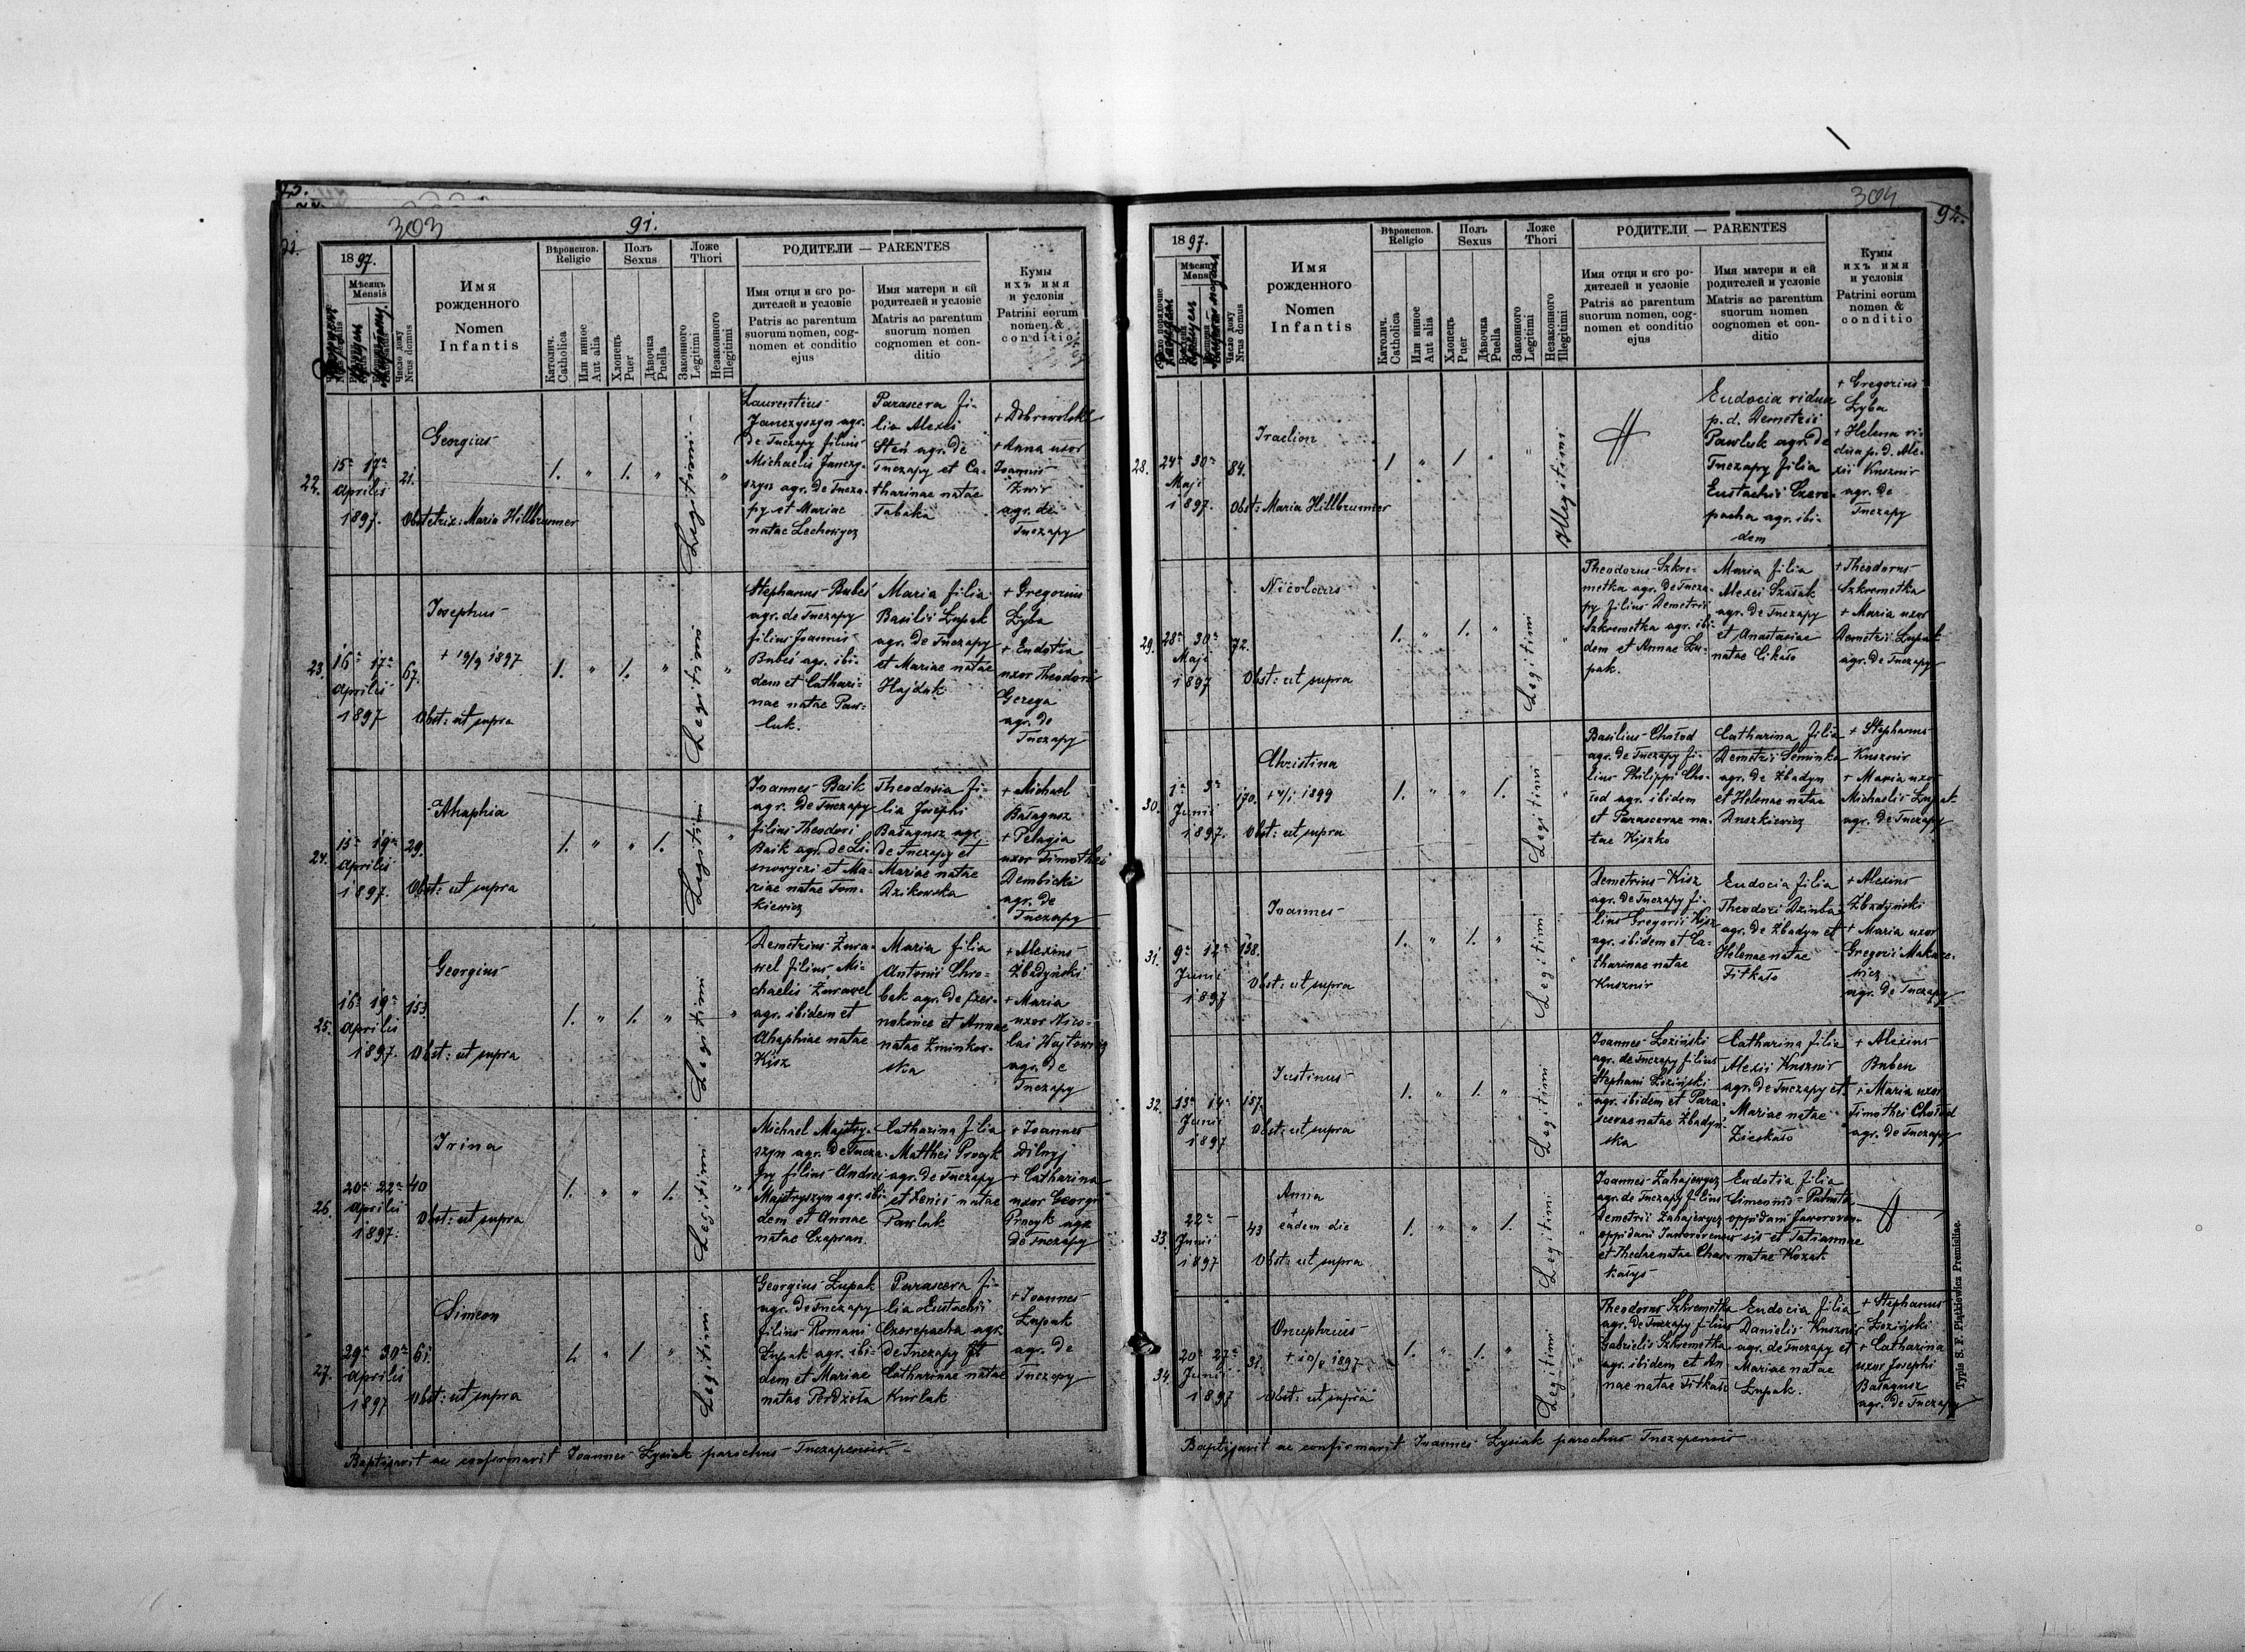 303
91.
1897.
Мѣсяцъ
Mensis
Число дому
Nrus domus
Имя
рожденного
Nomen
Infantis
Вѣроиспов.
Religio
Католич.
Catholica
Или инное
Aut alia
Полъ
Sexus
Хлопець
Puer
Дѣвочка
Puella
Ложе
Thori
Законного
Legitimi
Незаконного
Illegitimi
РОДИТЕЛИ — PARENTES
Имя отця и єго ро-
дителей и условіє
Patris ac parentum
suorum nomen, cog-
nomen et conditio
ejus
Имя матери и єй
родителей и условіє
Matris ac parentum
suorum nomen
cognomen et con-
ditio
Кумы
ихъ имя
и условія
Patrini eorum
nomen &
conditio
22.
15a 17a
Aprilis
1897.
21.
Georgius
Obstetrix: Maria Hillbrunner
1. " 1. "
Legitimi
"
Laurentius
Janczyszyn agr.
de Tuczapy filius
Michaelis Janczy-
szyn agr. de Tucza-
py et Mariae
natae Lechowycz
Parascera fi-
lia Alexii
Steń agr. de
Tuczapy et Ca-
tharinae natae
Tabaka
+ Anna uxor
Joannis
Żwir
agr. de
Tuczapy
23.
16a 17a
Aprilis
1897
67.
Josephus
+ 19/9 1897
Obst: ut supra
1. " 1. "
Legitimi
"
Stephanus Bubeś
agr. de Tuczapy
filius Joannis
Bubeś agr. ibi-
dem et Cathari-
nae natae Paw-
luk.
Maria filia
Basilii Łupak
agr. de Tuczapy
et Mariae natae
Hajduk
+ Gregorius
Łyba
+ Eudotia
uxor Theodori
Gerega
agr. de
Tuczapy
24.
15a 19a
Aprilis
1897.
29.
Ahaphia
Obst: ut supra
1. " " 1.
Legitimi
"
Joannes Baik
agr. de Tuczapy
filius Theodori
Baik agr. de Li-
snowyczi et Ma-
riae natae Tom-
kiewicz
Theodosia fi-
lia Josephi
Bałagusz agr.
de Tuczapy et
Mariae natae
Dzikowska
+ Michael
Bałagusz
+ Pelagia
uxor Timothei
Dembicki
agr. de
Tuczapy
25.
16a 19a
Aprilis
1897.
153.
Georgius
Obst: ut supra
1. " 1. "
Legitimi
"
Demetrius Żura-
wel filius Mi-
chaelis Żurawel
agr. ibidem et
Ahaphiae natae
Kisz
Maria filia
Antonii Chro-
bak agr. de Czer-
nokońce et Annae
natae Zminkow-
ska
+ Alexius
Zbadyński
+ Maria
uxor Nico-
lai Wojtowicz
agr. de
Tuczapy
26.
20a 22a
Aprilis
1897.
40
Irina
Obst: ut supra
1. " " 1.
Legitimi
"
Michael Majstry-
szyn agr. de Tucza-
py filius Andrei
Majstryszyn agr. ibi-
dem et Annae
natae Czapran.
Catharina filia
Matthei Procyk
agr. de Tuczapy
et Xeniis natae
Pawluk
+ Joannes
Dilnyj
+ Catharina
uxor Georgii
Procyk agr.
de Tuczapy
27.
29a 30a
Aprilis
1897
61.
Simeon
Obst: ut supra
1. " 1. "
Legitimi
Georgius Łupak
agr. de Tuczapy
filius Romani
Łupak agr. ibi-
dem et Mariae
natae Perdzoła
Parascera fi-
lia Eustachii
Czerepacha agr.
de Tuczapy et
Catharinae natae
Kurlak
+ Joannes
Łupak
agr. de
Tuczapy
Baptizavit ac confirmavit Joannes Łysiak parochus Tuczapensis
304
92.
1897.
Мѣсяцъ
Mensis
Число дому
Nrus domus
Имя
рожденного
Nomen
Infantis
Вѣроиспов.
Religio
Католич.
Catholica
Или инное
Aut alia
Полъ
Sexus
Хлопець
Puer
Дѣвочка
Puella
Ложе
Thori
Законного
Legitimi
Незаконного
Illegitimi
РОДИТЕЛИ — PARENTES
Имя отця и єго ро-
дителей и условіє
Patris ac parentum
suorum nomen, cog-
nomen et conditio
ejus
Имя матери и єй
родителей и условіє
Matris ac parentum
suorum nomen
cognomen et con-
ditio
Кумы
ихъ имя
и условія
Patrini eorum
nomen &
conditio
28.
24a 30a
Maji
1897.
84.
Iraclion
Obst: Maria Hillbrunner
1 " 1 "
"
Illegitimi
Eudocia vidua
p. d. Demetrii
Pawluk agr. de
Tuczapy filia
Eustachii Czere-
pacha agr. ibi-
dem
+ Gregorius
Łyba
+ Helena vi-
dua p. d. Ale-
xii Kusznir
agr. de
Tuczapy
29.
28a 30a
Maji
1897
72.
Nicolaus
Obst: ut supra
1. " 1. "
Legitimi
"
Theodorus Szkre-
metka agr. de Tucza-
py filius Demetrii
Szkremetka agr. ibi-
dem et Annae Łu-
pak.
Maria filia
Alexei Szałak
agr. de Tuczapy
et Anastasiae
natae Cikało
+ Theodorus
Szkremetka
+ Maria uxor
Demetrii Łupak
agr. de Tuczapy
30.
1a 3a
Junii
1897.
170.
Christina
+ 4/1 1899
Obst: ut supra
1. " " 1.
Legitimi
"
Basilius Chołod
agr. de Tuczapy fi-
lius Philippi Cho-
łod agr. ibidem
et Parascevae na-
tae Kiszko
Catharina filia
Demetrii Seminka
agr. de Zbadyn
et Helenae natae
Duszkiewicz
+ Stephanus
Kusznir
+ Maria uxor
Michaelis Łupak
agr. de Tuczapy
31.
9a 12a
Junii
1897
138.
Joannes
Obst: ut supra
1. " 1. "
Legitimi
"
Demetrius Kisz
agr. de Tuczapy fi-
lius Gregorii Kisz
agr. ibidem et Ca-
tharinae natae
Kusznir
Eudocia filia
Theodori Dzinba
agr. de Zbadyn et
Helenae natae
Fitkało
+ Alexius
Zbadyński
+ Maria uxor
Gregorii Makare-
wicz
agr. de Tuczapy
32.
13a 14a
Junii
1897
157.
Justinus
Obst: ut supra
1. " 1. "
Legitimi
"
Joannes Łoziński
agr. de Tuczapy filius
Stephani Łoziński
agr. ibidem et Para-
scevae natae Zbadyń-
ska
Catharina filia
Alexii Kusznir
agr. de Tuczapy et
Mariae natae
Zieskało
+ Alexius
Buben
+ Maria uxor
Timothei Chołod
agr. de Tuczapy
33.
22a —
Junii
1897
43
Anna
+
eadem die
Obst: ut supra
1. " " 1.
Legitimi
"
Joannes Zahajewycz
agr. de Tuczapy filius
Demetrii Zahajewycz
oppidani Jaworoven
et Theclae natae Char-
kałys
Eudotia filia
Simeonis
oppidani Jaworoven-
sis et Tatiannae
natae Kozak
34.
20a 27a
Junii
1897
31.
Onuphrius
+ 10/8 1897
Obst: ut supra
1. " 1. "
Legitimi
"
Theodorus Szkremetka
agr. de Tuczapy filius
Gabrielis Szkremetka
agr. ibidem et An-
nae natae Fitkało
Eudocia filia
Danielis Kusznir
agr. de Tuczapy et
Mariae natae
Łupak.
+ Stephanus
Łoziński
+ Catharina
uxor Josephi
Bałagusz
agr. de Tuczapy
Baptizavit ac confirmavit Joannes Łysiak parochus Tuczapensis
Typis S. F. Piątkiewicz Premisliae.